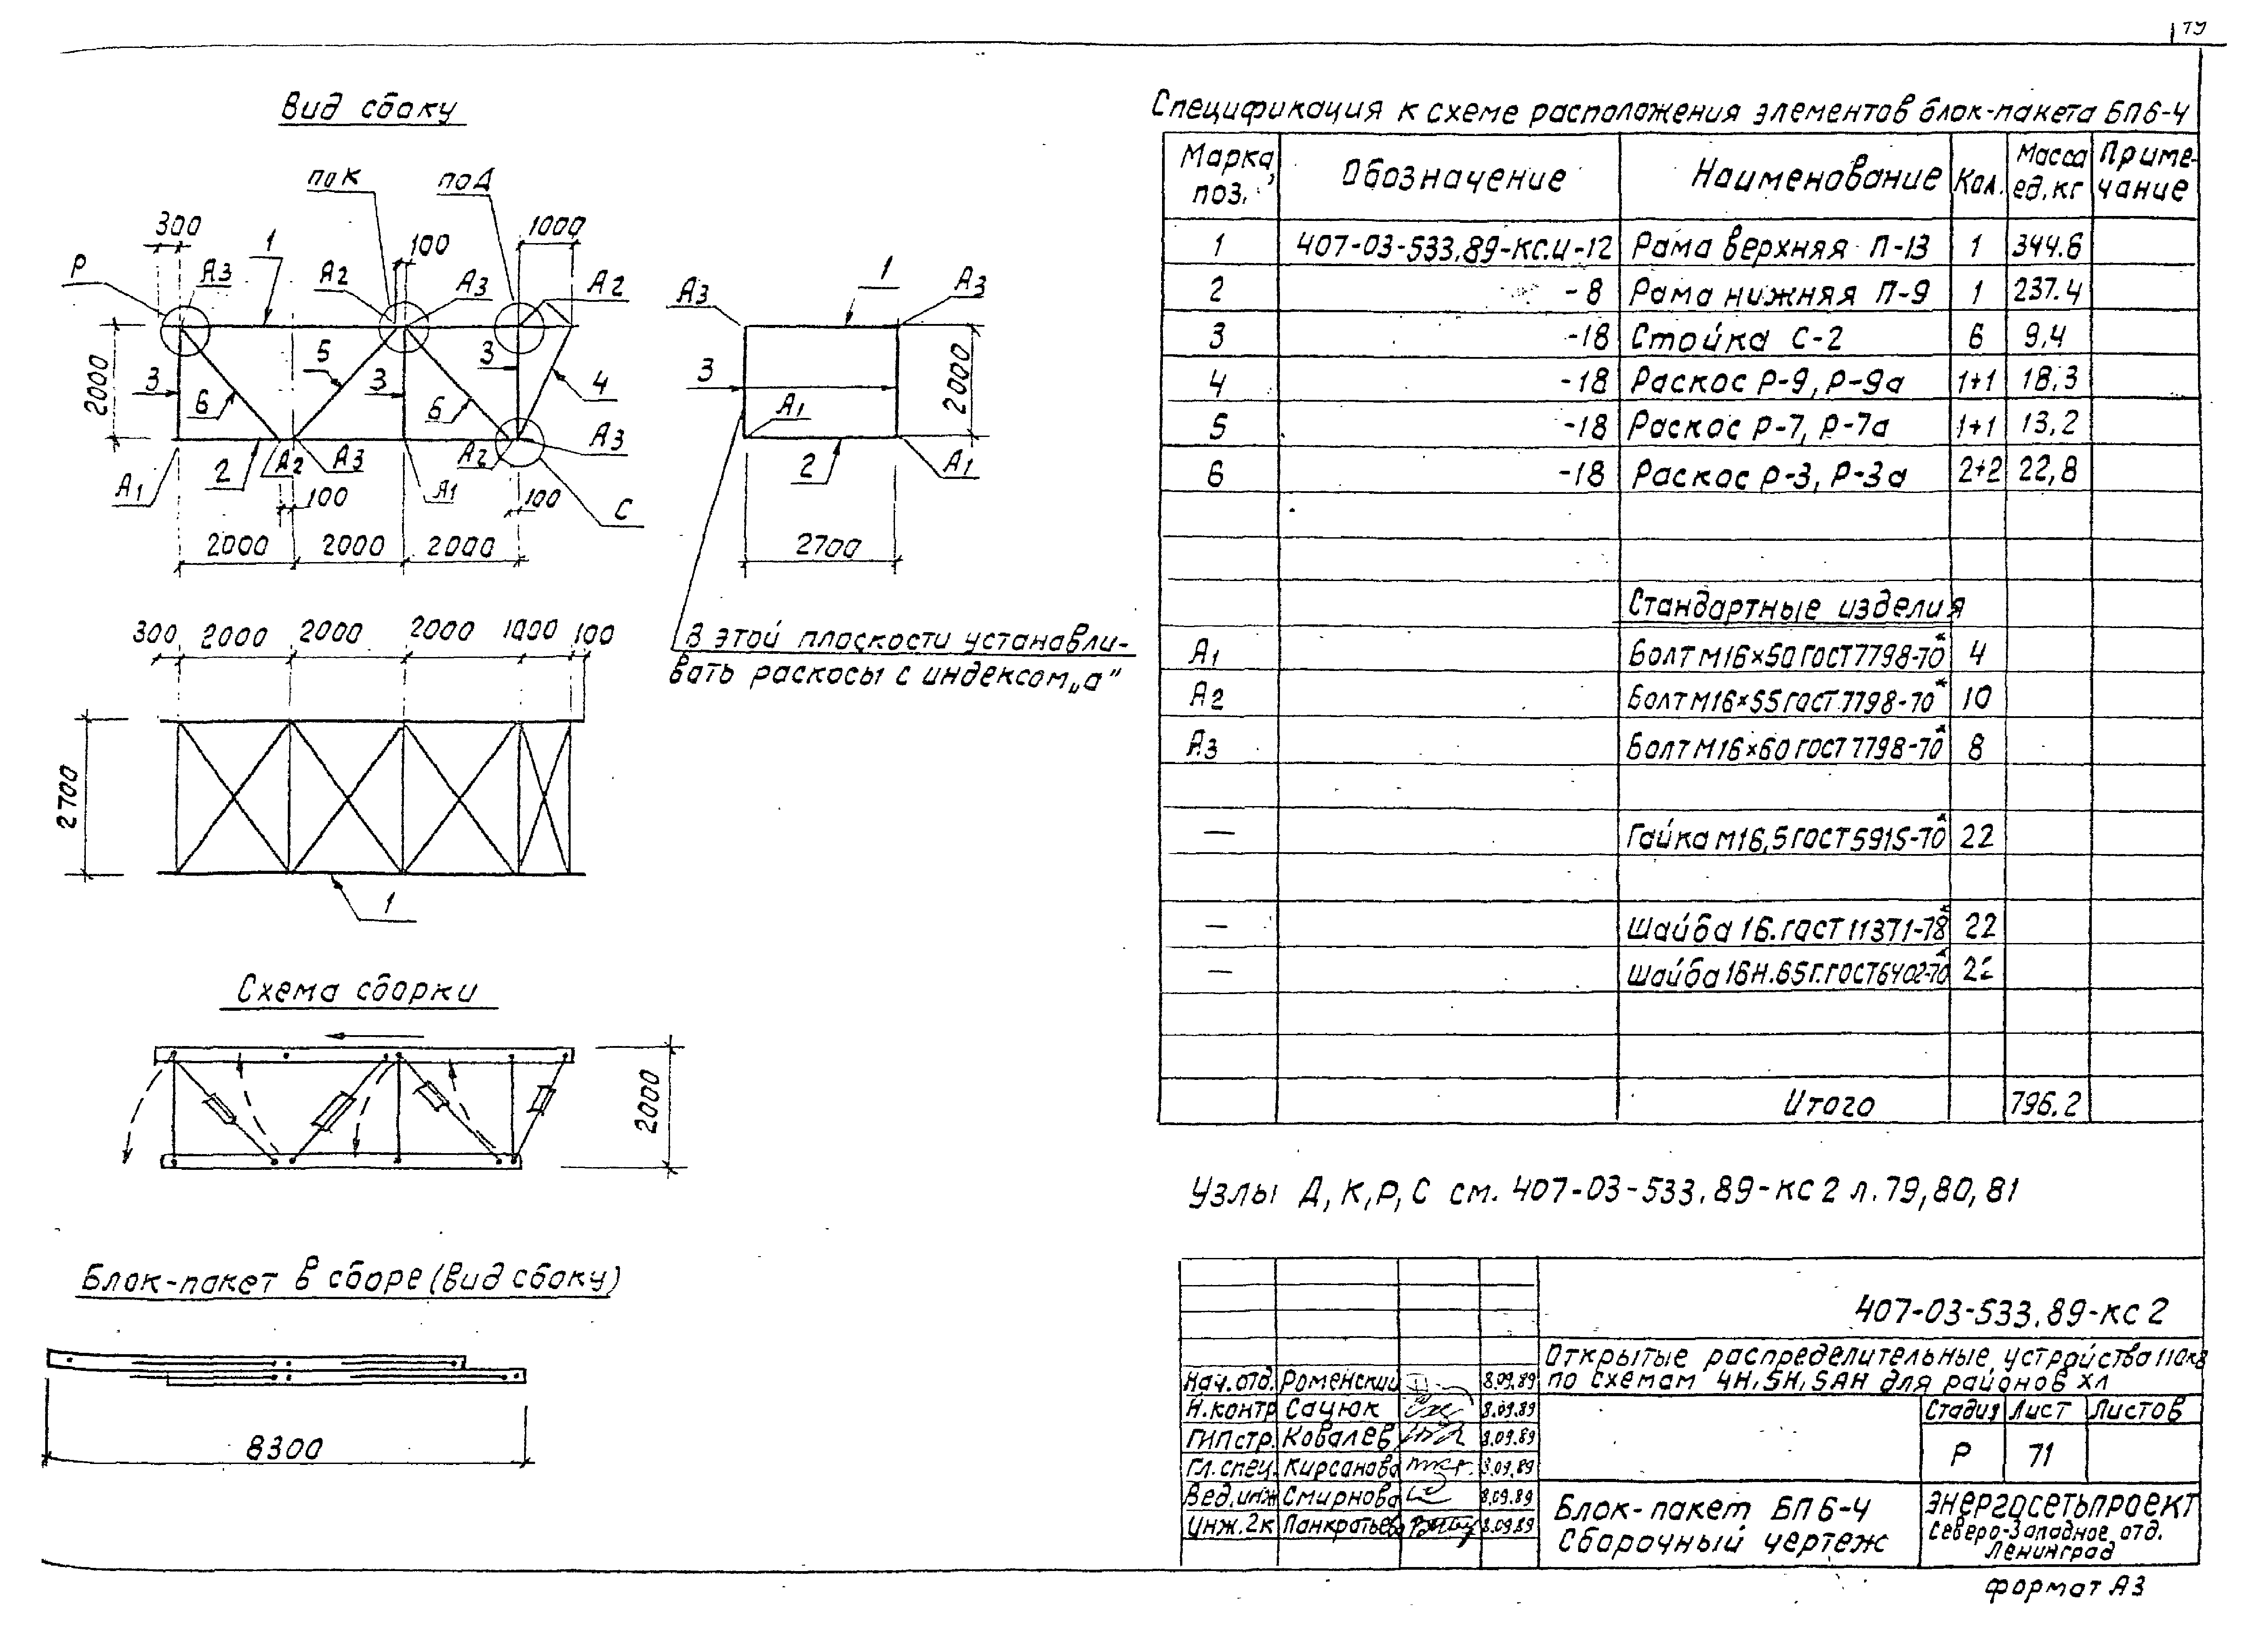 Вид сбоку
по К
по Д
300
1
100
1000
Р
А3
А2
А3
А2
2000
3
6
5
3
6
3
4
А1
2
А2
А3
А1
А2
А3
С
100
100
2000
2000
2000
А3
1
А3
3
2000
А1
2
А1
2700
В этой плоскости устанавли-
вать раскосы с индексом „а"
300 2000 2000 2000 1000 100
2700
1
Схема сборки
2000
Блок-пакет в сборе (вид сбоку)
8300
Спецификация к схеме расположения элементов блок-пакета БП6-4
Марка, поз. Обозначение Наименование Кол. Масса ед.кг Приме-чание
1 407-03-533.89-КС.И-12 Рама верхняя П-13 1 344.6
2 -8 Рама нижняя П-9 1 237.4
3 -18 Стойка С-2 6 9,4
4 -18 Раскос Р-9, Р-9а 1+1 18,3
5 -18 Раскос Р-7, Р-7а 1+1 13,2
6 -18 Раскос Р-3, Р-3а 2+2 22,8
Стандартные изделия
А1 Болт М16×50 ГОСТ 7798-70* 4
А2 Болт М16×55 ГОСТ 7798-70* 10
А3 Болт М16×60 ГОСТ 7798-70* 8
— Гайка М16,5 ГОСТ 5915-70* 22
— Шайба 16. ГОСТ 11371-78* 22
— Шайба 16Н.65Г. ГОСТ 6402-70* 22
Итого 796.2
Узлы Д, К, Р, С см. 407-03-533.89-КС 2 л. 79, 80, 81
407-03-533.89-КС 2
Открытые распределительные устройства 110кВ
по схемам 4Н, 5Н, 5АН для районов ХЛ
Нач.отд. Роменский 8.09.89
Н.контр Сацюк 8.09.89
ГИП стр. Ковалев 8.09.89
Гл.спец. Кирсанова 8.09.89
Вед.инж Смирнова 8.09.89
Инж.2к Панкратьева 8.09.89
Стадия Лист Листов
Р 71
Блок-пакет БП6-4
Сборочный чертеж
ЭНЕРГОСЕТЬПРОЕКТ
Северо-Западное отд.
Ленинград
формат А3